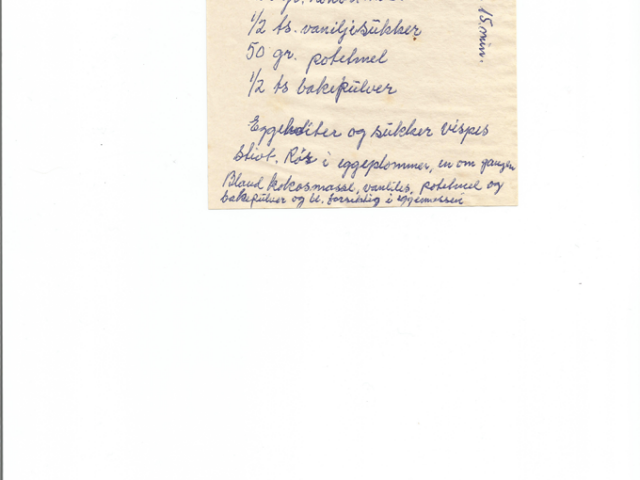 1/2 ts. vaniljesukker
50 gr. potetmel
1/2 ts bakepulver
15 min.
Eggehviter og sukker vispes
stivt. Rör i eggeplommer, en om gangen
Bland kokosmasse, vanilles, potetmel og
bakepulver og bl. forsiktig i eggemassen